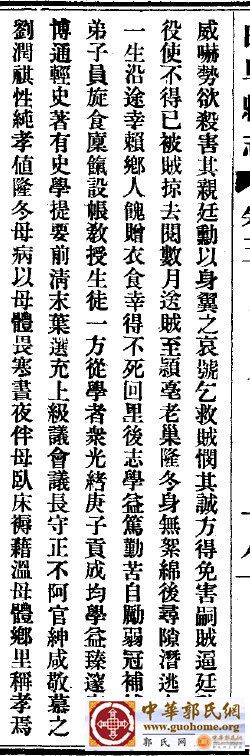 威嚇勢欲殺害其親廷勳以身翼之哀號乞救賊憫其誠方得免害嗣賊逼廷
役使不得已被賊掠去閱數月迨賊至潁亳老巢隆冬身無絮綿後尋隙潛逃
一生沿途幸賴鄉人餽贈衣食幸得不死回里後志學益篤勤苦自勵弱冠補
弟子員旋食廩餼設帳敎授生徒一方從學者衆光緒庚子貢成均學益臻邃
博通輕史著有史學提要前淸末葉選充上級議會議長守正不阿官紳咸敬慕之
劉潤祺性純孝値隆冬母病以母體畏寒晝夜伴母臥床褥藉溫母體鄉里稱孝焉
中華郭氏網
www.guohome.org
郭氏网